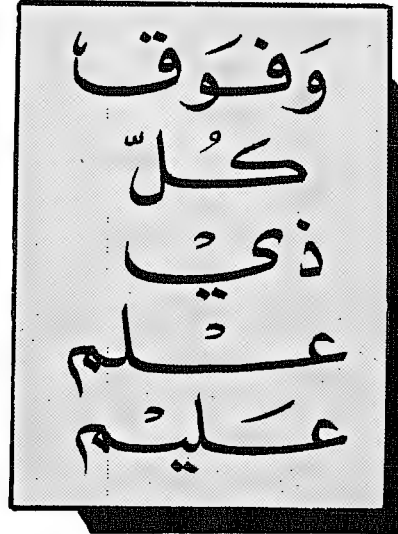 وَفَوَقَ
كُلّ
ذيْ
علْم
عَليْم